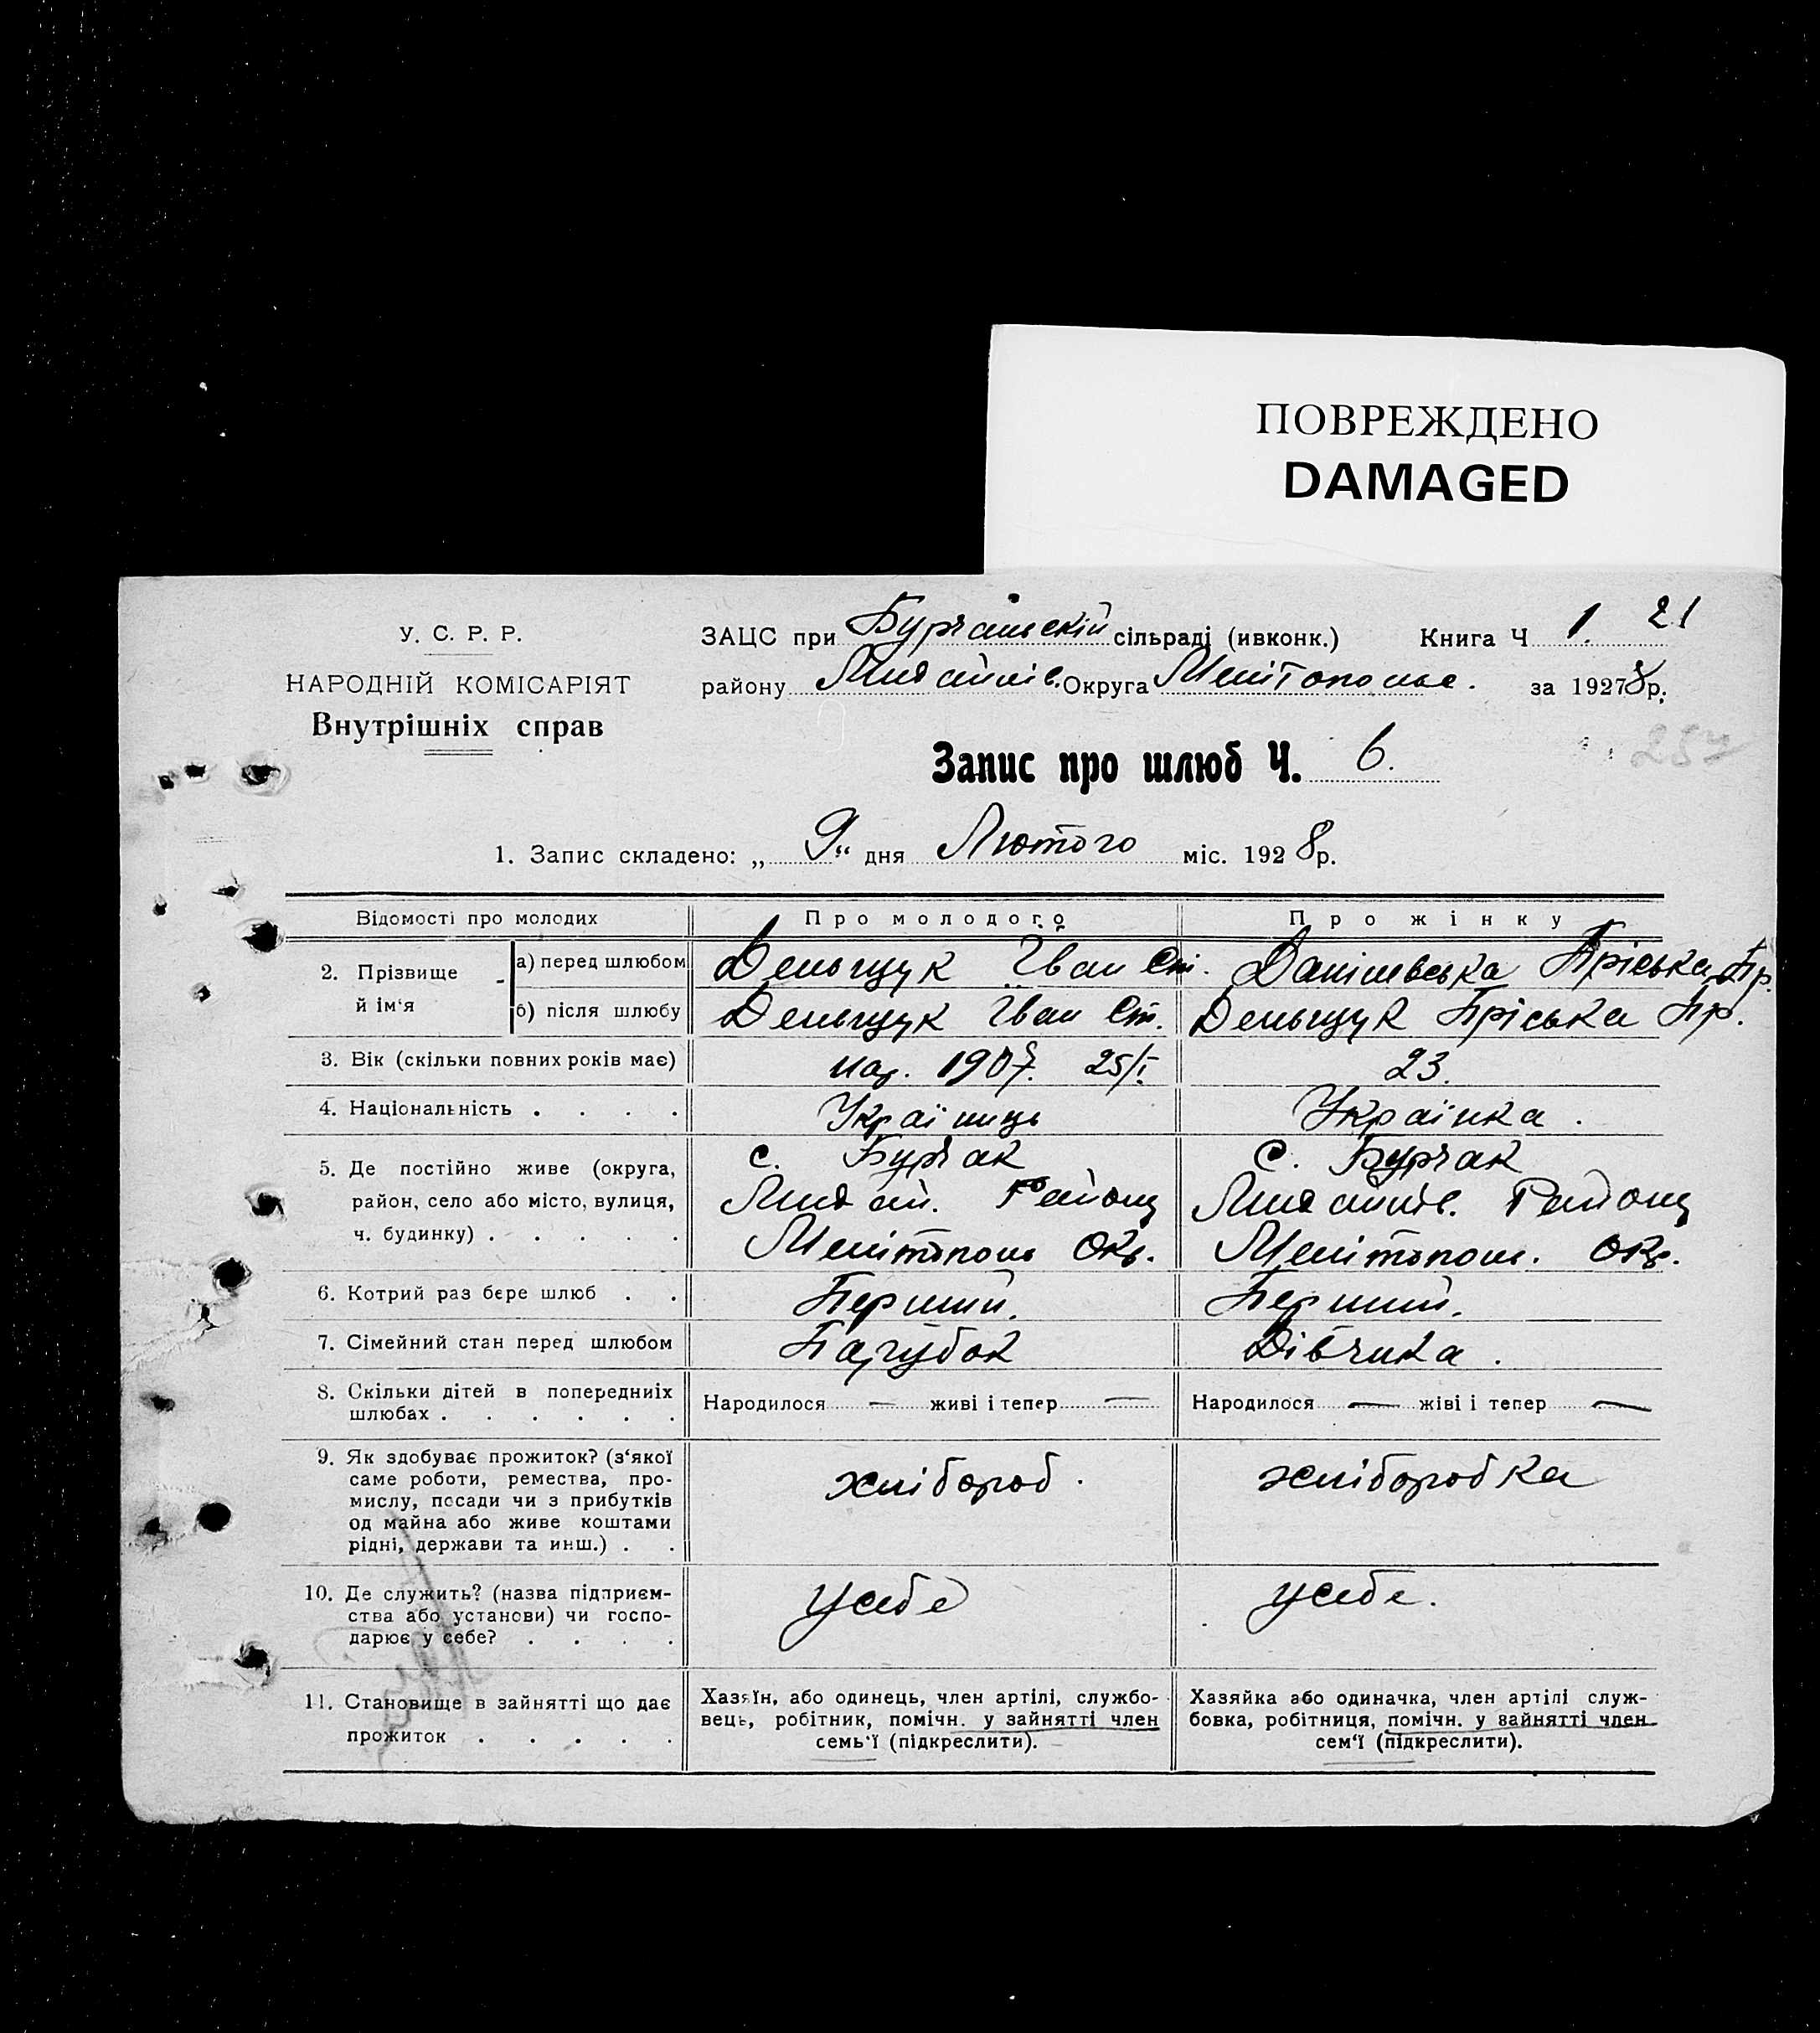 ПОВРЕЖДЕНО
DAMAGED
У. С. Р. Р.
НАРОДНІЙ КОМІСАРІЯТ
Внутрішніх справ
ЗАЦС при Бурчанській сільраді (ивконк.) Книга Ч 1. 21
району Округа Мелітопольс. за 1927 8 р.
257
Запис про шлюб Ч. 6.
1. Запис складено: „ 9 “ дня Лютого міс. 192 8 р.
Відомості про молодих Про молодого Про жінку
2. Прізвище й ім‘я
а) перед шлюбом Деньщук Іван Ст. Данілевська Пріська Пр.
б) після шлюбу Деньщук Іван Ст. Деньщук Пріська Пр.
3. Вік (скільки повних років має) нар. 1907. 25/І. 23.
4. Національність . . . . Українець Українка .
5. Де постійно живе (округа, с. Бурчак с. Бурчак
район, село або місто, вулиця, Району Району
ч. будинку) . . . . . Мелітополь Окр. Мелітополь. Окр.
6. Котрий раз бере шлюб . . Перший. Перший.
7. Сімейний стан перед шлюбом Парубок Дівчина .
8. Скільки дітей в попередниіх
шлюбах . . . . . . Народилося — живі і тепер — Народилося — жіві і тепер —
9. Як здобуває прожиток? (з‘якої
саме роботи, ремества, про-
мислу, посади чи з прибутків
од майна або живе коштами
рідні, держави та инш.) . .
хлібороб . хліборобка
10. Де служить? (назва підприєм-
ства або установи) чи госпо-
дарює у себе? . . . .
у себе у себе.
11. Становище в зайнятті що дає
прожиток . . . . .
Хазяїн, або одинець, член артілі, службо-
вець, робітник, помічн. у зайнятті член
семь‘ї (підкреслити).
Хазяйка або одиначка, член артілі служ-
бовка, робітниця, помічн. у зайнятті член
сем‘ї (підкреслити).